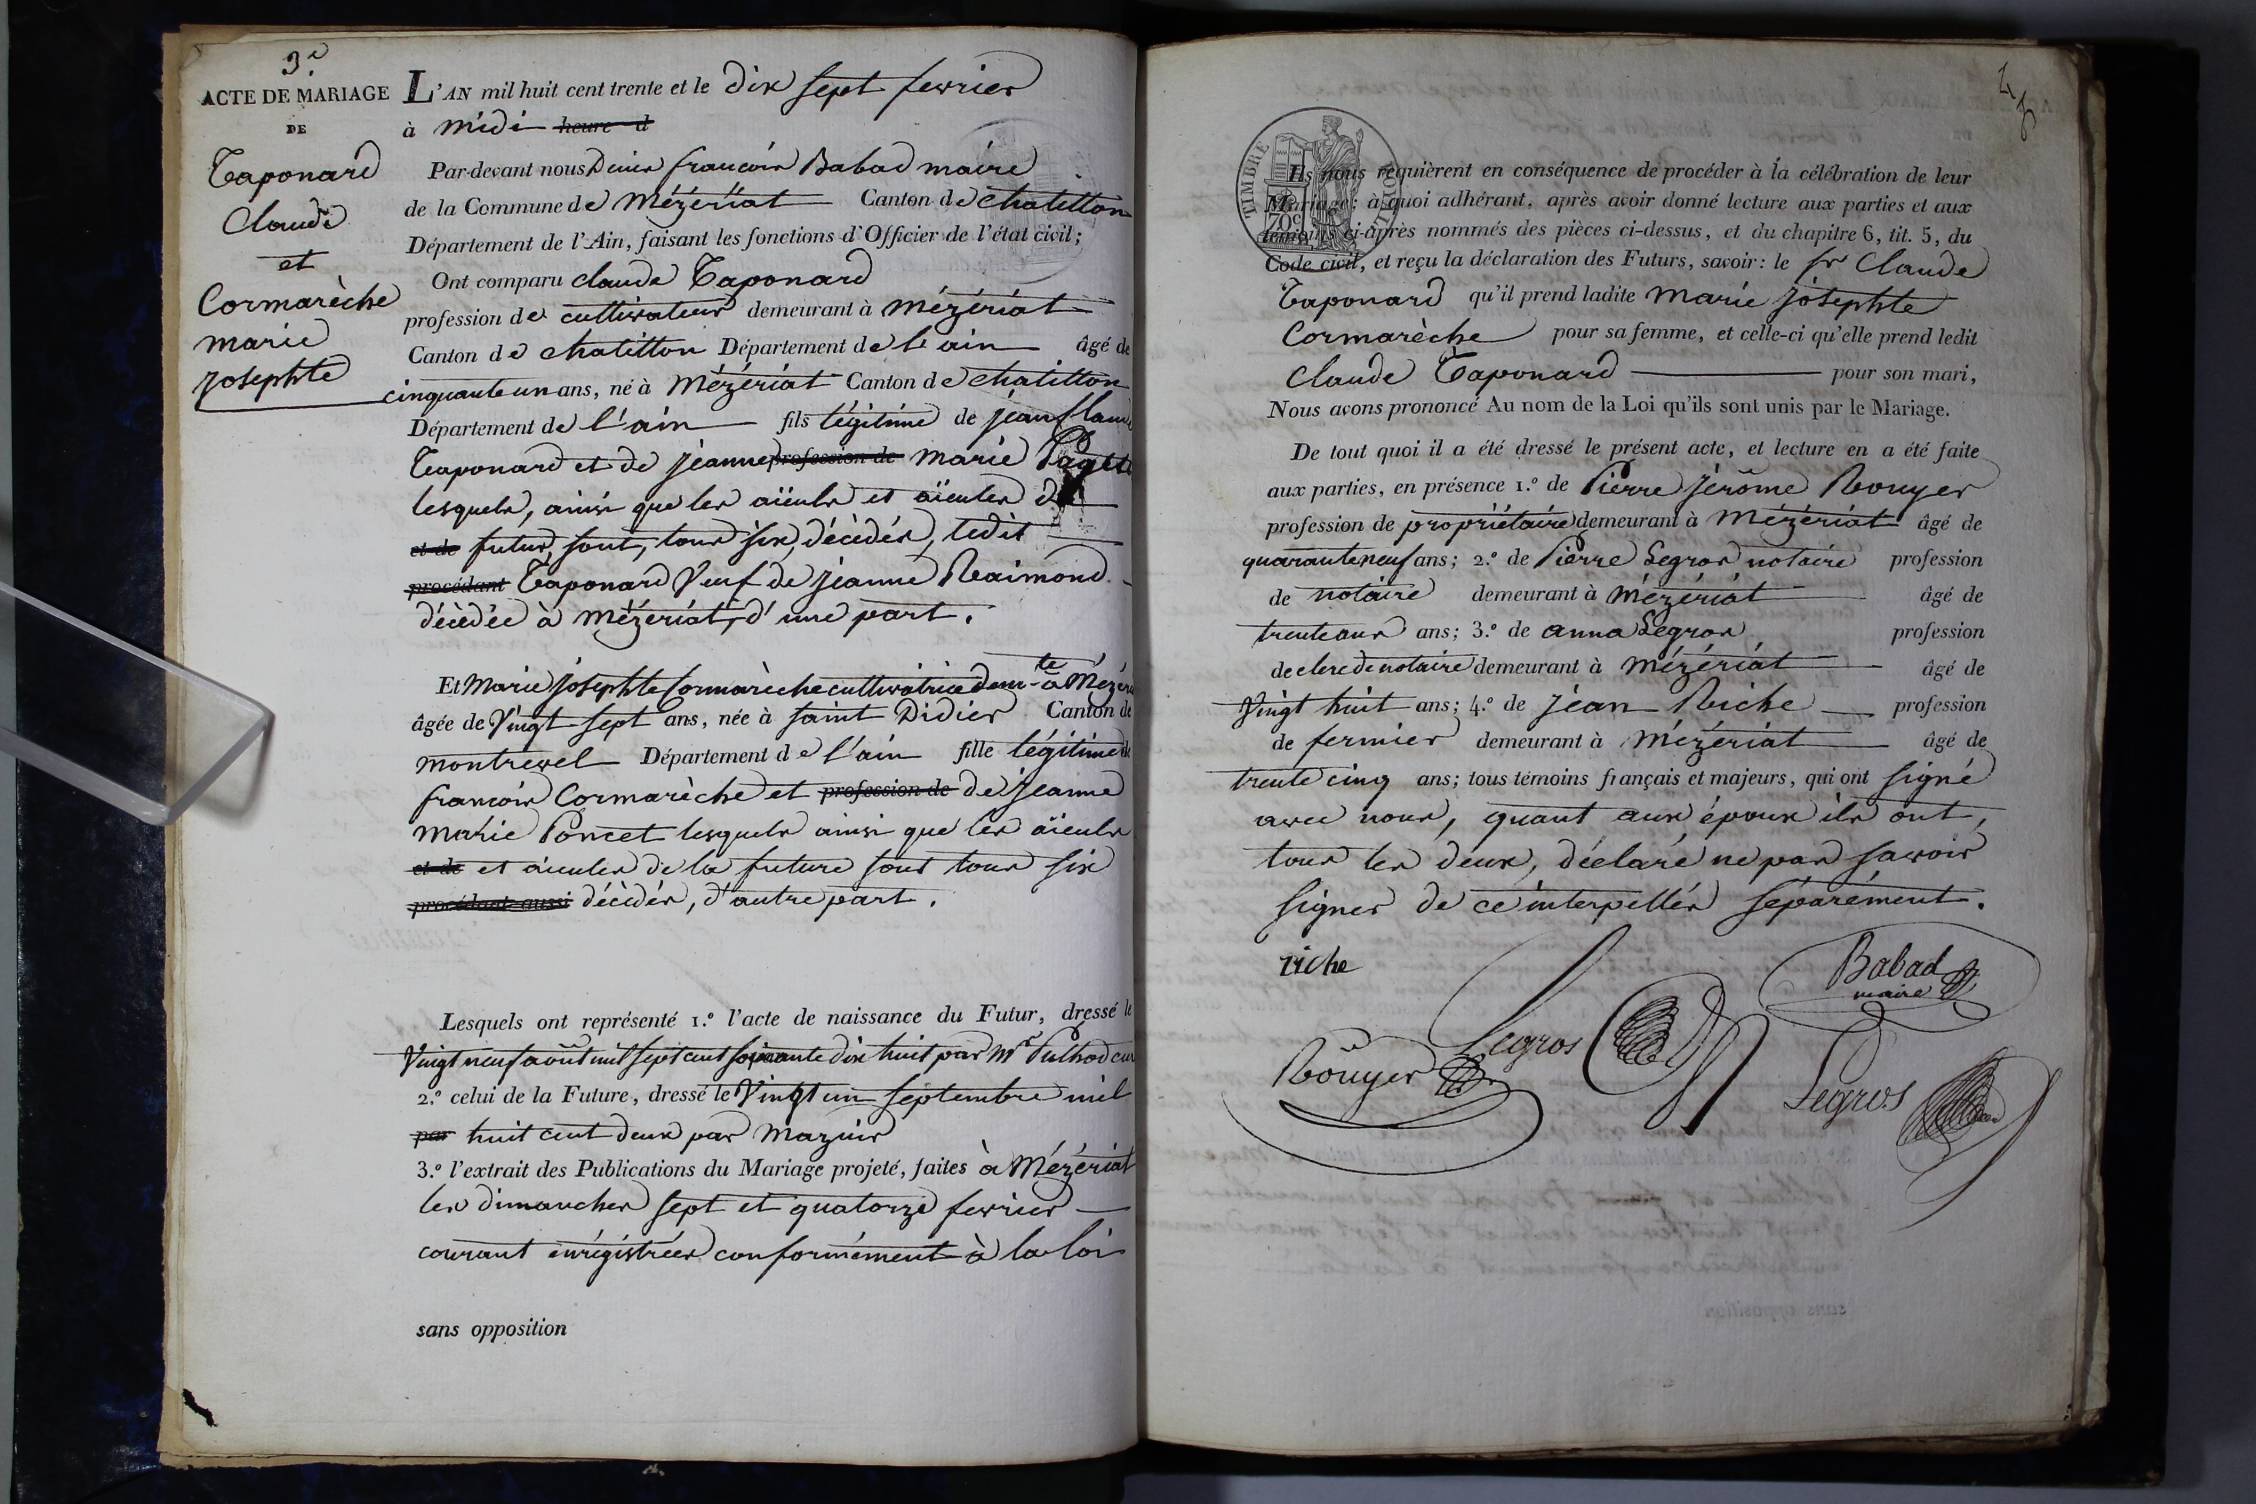 3e
ACTE DE MARIAGE
DE
Taponard
Claude
et
Cormarèche
marie
josephte
L'AN mil huit cent trente et le dix sept fevrier
à midi heure d
Par-devant nous Denis françois Babad maire
de la Commune de Mézériat Canton de chatillon
Département de l'Ain, faisant les fonctions d'Officier de l'état civil;
Ont comparu claude Taponard
profession de cultivateur demeurant à mézériat
Canton de chatillon Département de l'ain âgé de
cinquante un ans, né à Mézériat Canton de chatillon
Département de l'ain fils légitime de jean Claude
Taponard et de jeanne profession de marie
lesquels, ainsi que les aïeuls et aïeules du
et de futur, sont, tous six, décédés, ledit
procédant Taponard Veuf de jeanne Raimond
décédée à mézériat, d'une part.
Et Marie josephte Cormarèche cultivatrice demte à Mézériat
âgée de Vingt sept ans, née à saint Didier Canton de
montrevel Département de l'ain fille légitime de
françois Cormarèche et profession de de jeanne
marie Poncet lesquels ainsi que les aïeuls
et de et aïeules de la future sont tous six
procédant aussi décédés, d'autre part.
Lesquels ont représenté 1.º l'acte de naissance du Futur, dressé le
Vingt neuf août mil sept cent soixante dix huit par Mr Puthod curé
2.º celui de la Future, dressé le Vingt un septembre mil
par huit cent deux par Mazuir
3.º l'extrait des Publications du Mariage projeté, faites à Mézériat
les dimanches sept et quatorze fevrier
courant enrégistrées conformément à la loi
sans opposition
TIMBRE ROYAL
70c
Ils nous requièrent en conséquence de procéder à la célébration de leur
Mariage; à quoi adhérant, après avoir donné lecture aux parties et aux
témoins ci-après nommés des pièces ci-dessus, et du chapitre 6, tit. 5, du
Code civil, et reçu la déclaration des Futurs, savoir: le sr Claude
Taponard qu'il prend ladite marie josephte
Cormarèche pour sa femme, et celle-ci qu'elle prend ledit
Claude Taponard pour son mari,
Nous avons prononcé Au nom de la Loi qu'ils sont unis par le Mariage.
De tout quoi il a été dressé le présent acte, et lecture en a été faite
aux parties, en présence 1.º de Pierre jérôme Rouyer
profession de propriétaire demeurant à Mézériat âgé de
quarante neuf ans; 2.º de Pierre Legros notaire profession
de notaire demeurant à Mézériat âgé de
trente ans ans; 3.º de anna Legros profession
de clerc de notaire demeurant à Mézériat âgé de
Vingt huit ans; 4.º de jean Riche profession
de fermier demeurant à Mézériat âgé de
trente cinq ans; tous témoins français et majeurs, qui ont signé
avec nous, quant aux époux ils ont,
tous les deux, déclaré ne pas savoir
signer de ce interpellés séparément.
riche
Babad
maire
Legros
Rouyer
Legros